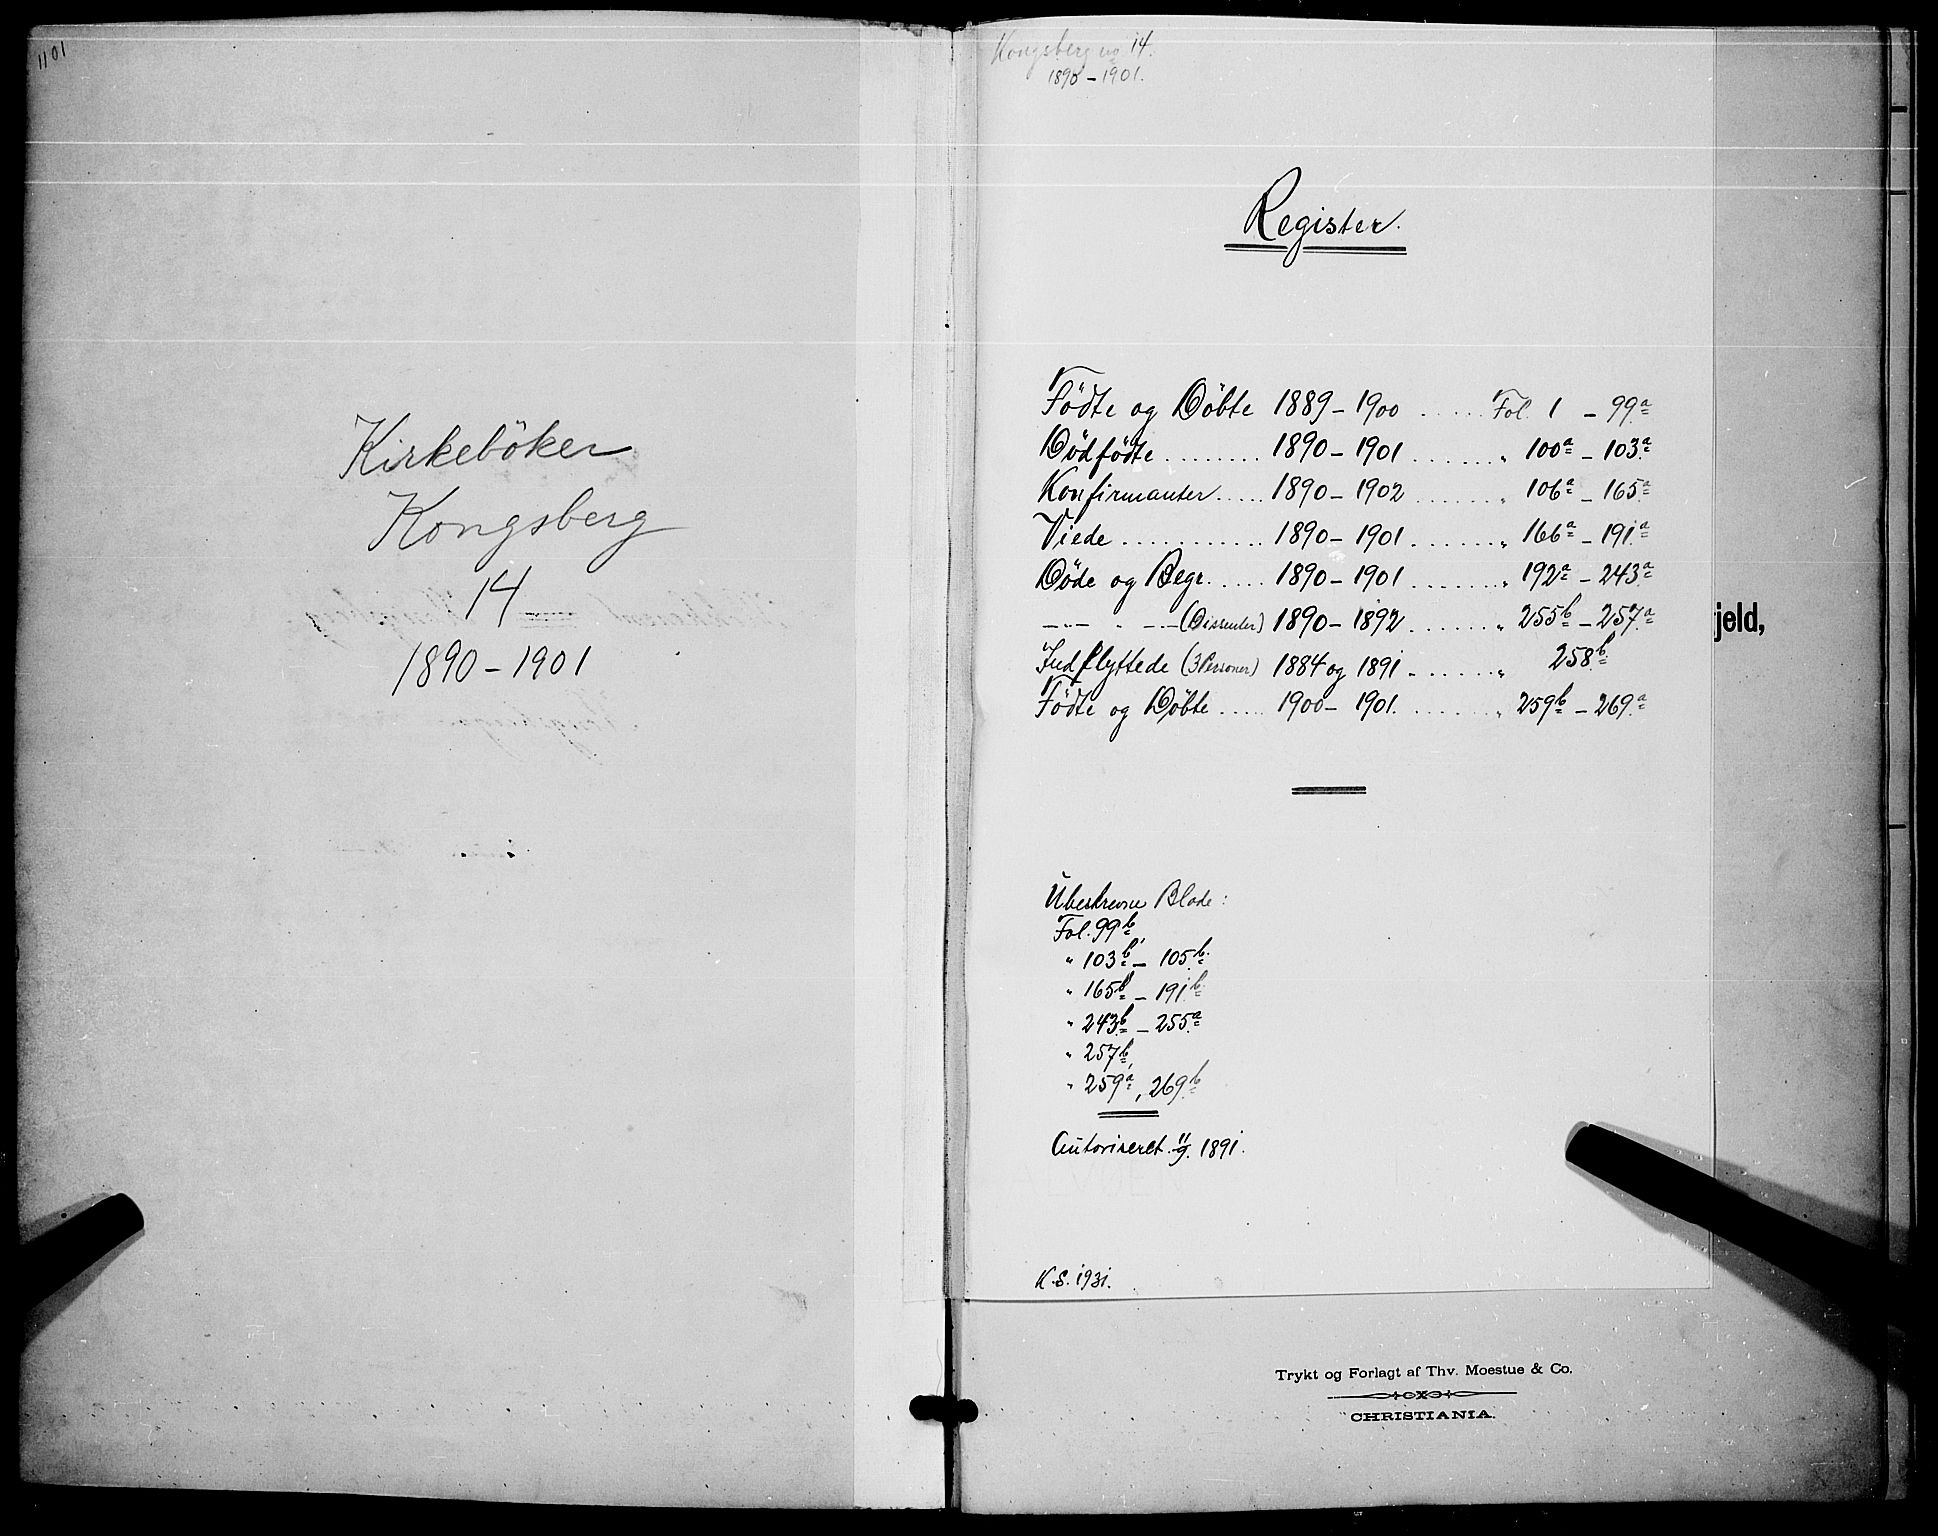 1101
Kirkeböker
Kongsberg
14
1890 – 1901
Kongsberg no 14.
1890 – 1901.
Register.
Födte og Döbte 1889 – 1900 ..... Fol. 1 – 99a
Dödfödte ......... 1890 – 1901 ....... " 100a – 103a
Konfirmanter ..... 1890 – 1902 ....... " 106a – 165a
Viede ............ 1890 – 1901 ....... " 166a – 191a
Döde og Begr. ..... 1890 – 1901 ....... " 192a – 243a
—"— " —"— (Dissenter) 1890 – 1892 ....... " 255b – 257a
Indflyttede (3 Personer) 1884 og 1891 ....... " 258b
Födte og Döbte ..... 1900 – 1901. ....... " 259b – 269a
jeld,
Ubeskrevne Blade:
Fol. 99b,
" 103b – 105b
" 165b – 191b
" 243b – 255a
" 257b,
" 259a, 269b
Autoriseret 11/9. 1891.
K.S. 1931.
Trykt og Forlagt af Thv. Moestue & Co.
CHRISTIANIA.